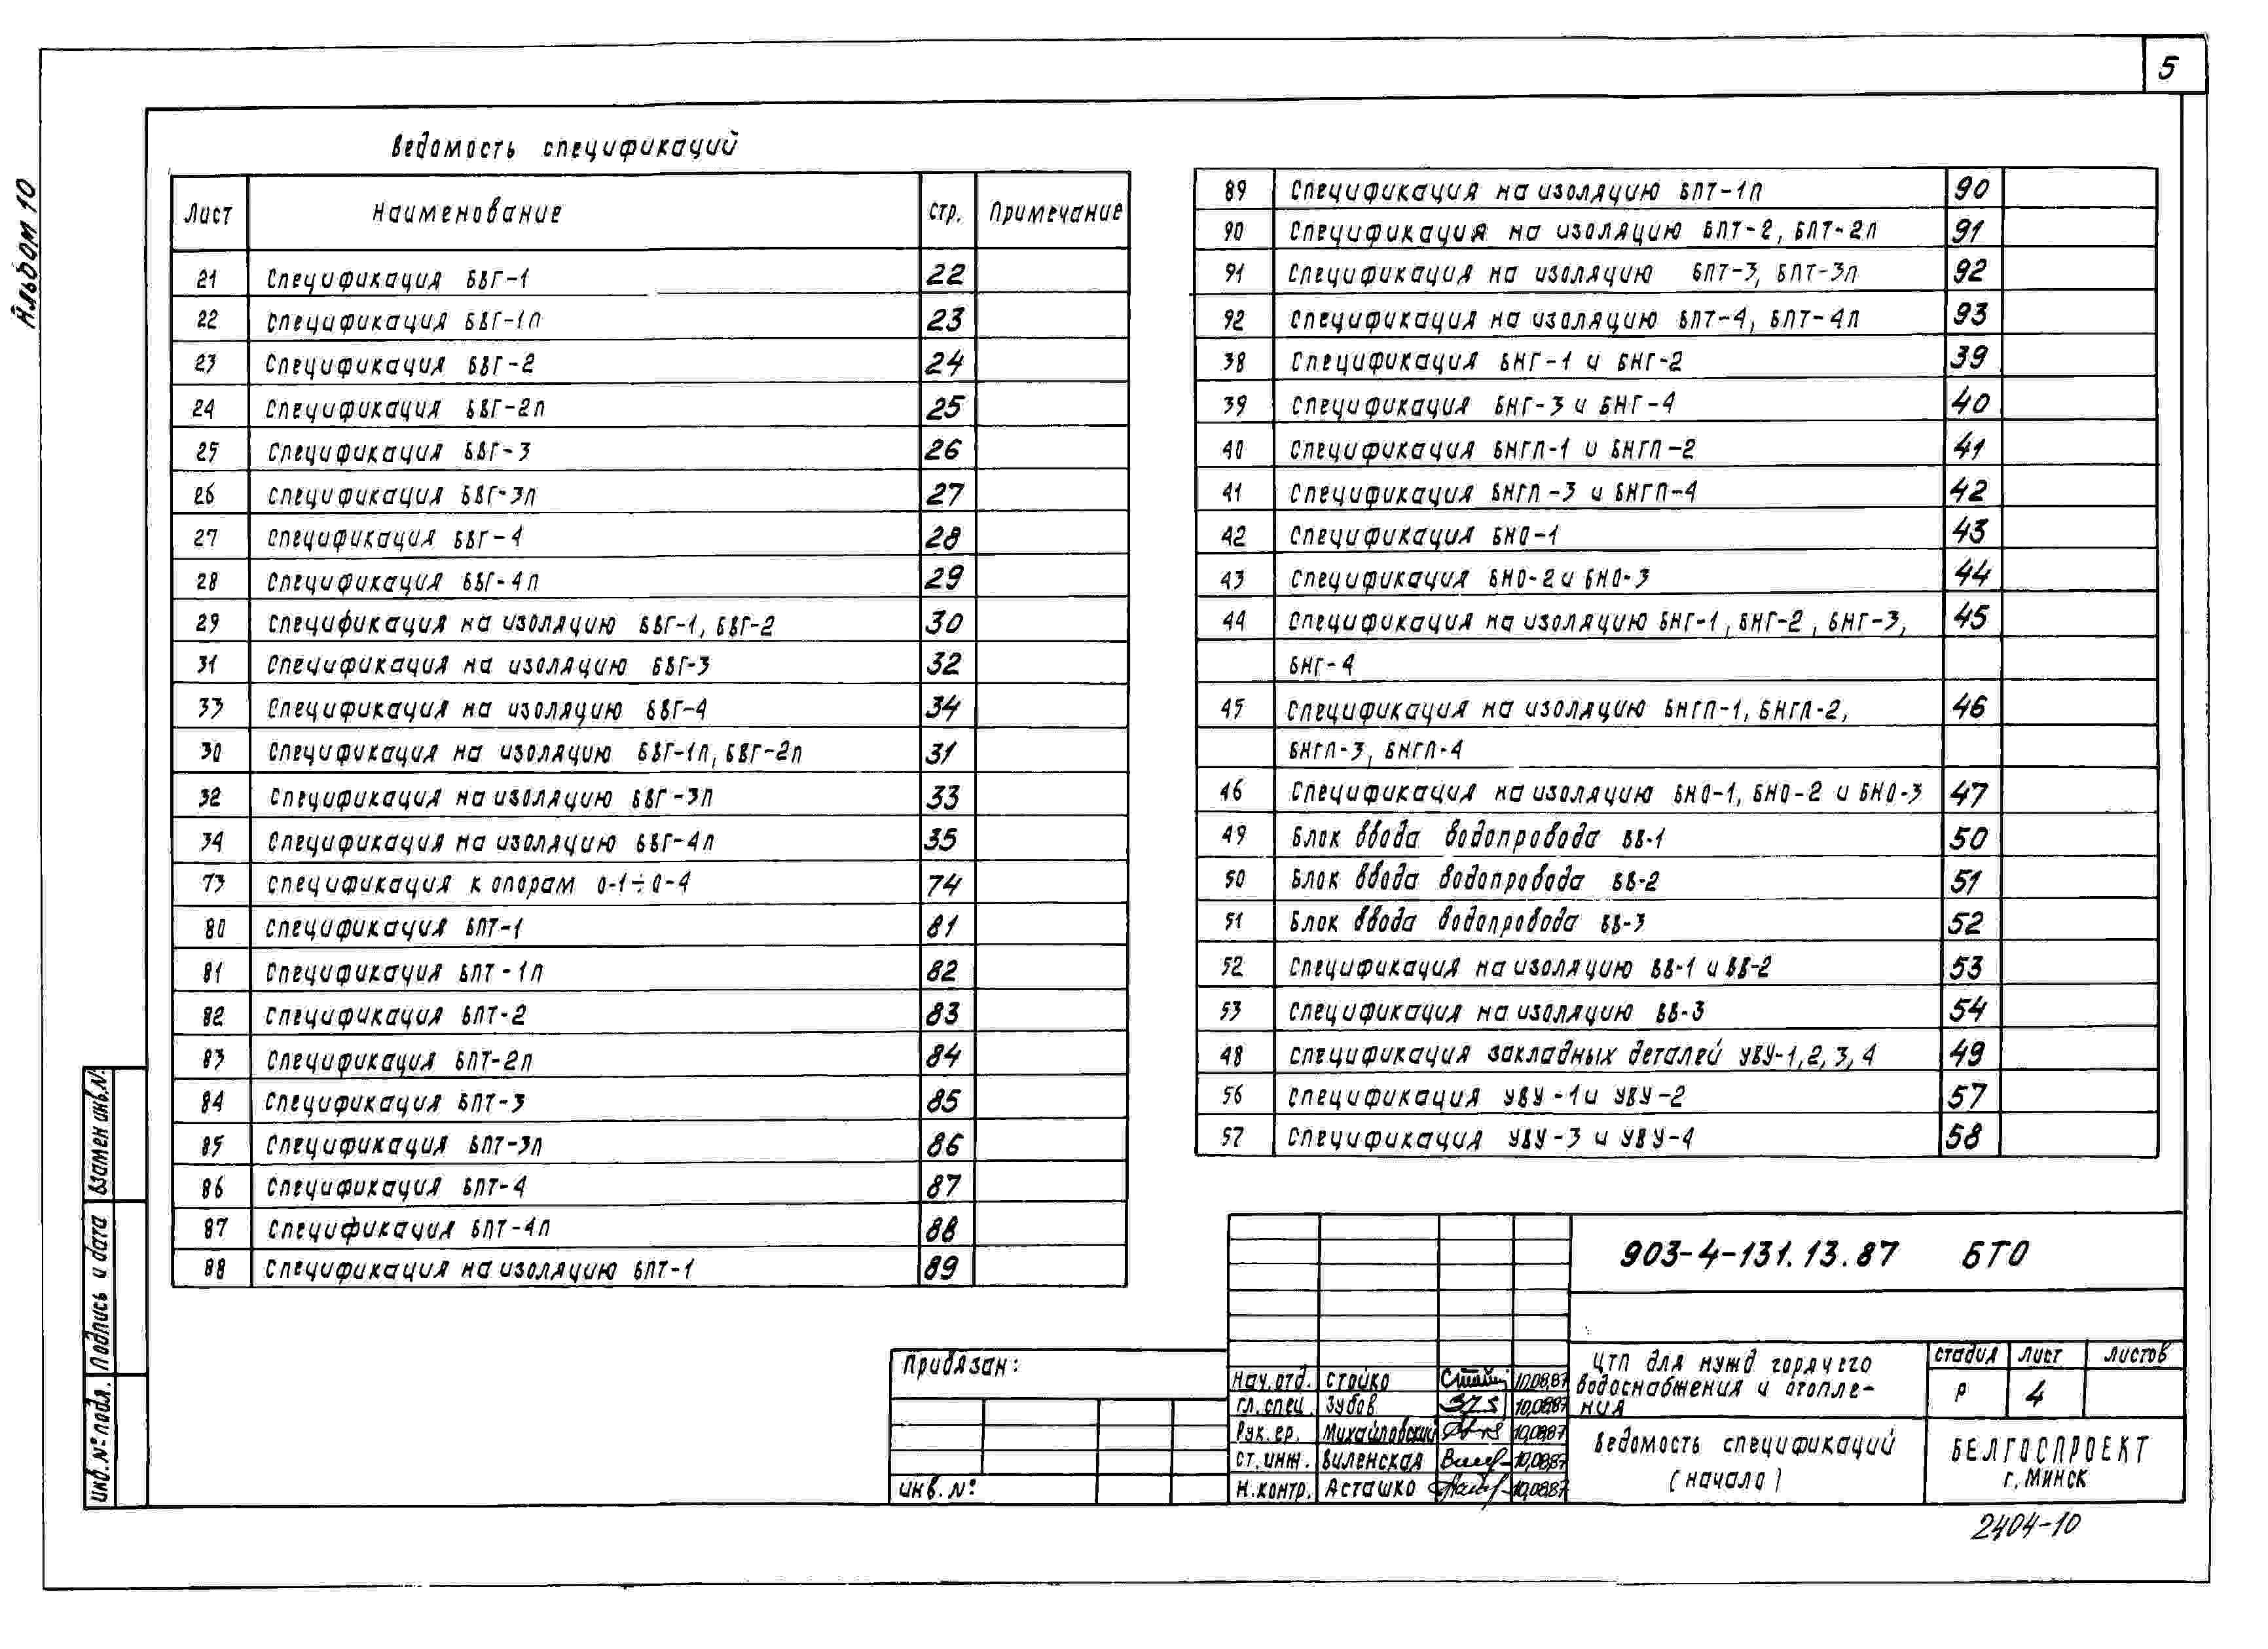 5
Альбом 10
Ведомость спецификаций
Лист Наименование Стр. Примечание
21 Спецификация БВГ-1 22
22 Спецификация БВГ-1п 23
23 Спецификация БВГ-2 24
24 Спецификация БВГ-2п 25
25 Спецификация БВГ-3 26
26 Спецификация БВГ-3п 27
27 Спецификация БВГ-4 28
28 Спецификация БВГ-4п 29
29 Спецификация на изоляцию БВГ-1, БВГ-2 30
31 Спецификация на изоляцию БВГ-3 32
33 Спецификация на изоляцию БВГ-4 34
30 Спецификация на изоляцию БВГ-1п, БВГ-2п 31
32 Спецификация на изоляцию БВГ-3п 33
34 Спецификация на изоляцию БВГ-4п 35
73 Спецификация к опорам О-1÷О-4 74
80 Спецификация БПТ-1 81
81 Спецификация БПТ-1п 82
82 Спецификация БПТ-2 83
83 Спецификация БПТ-2п 84
84 Спецификация БПТ-3 85
85 Спецификация БПТ-3п 86
86 Спецификация БПТ-4 87
87 Спецификация БПТ-4п 88
88 Спецификация на изоляцию БПТ-1 89
89 Спецификация на изоляцию БПТ-1п 90
90 Спецификация на изоляцию БПТ-2, БПТ-2п 91
91 Спецификация на изоляцию БПТ-3, БПТ-3п 92
92 Спецификация на изоляцию БПТ-4, БПТ-4п 93
38 Спецификация БНГ-1 и БНГ-2 39
39 Спецификация БНГ-3 и БНГ-4 40
40 Спецификация БНГП-1 и БНГП-2 41
41 Спецификация БНГП-3 и БНГП-4 42
42 Спецификация БНО-1 43
43 Спецификация БНО-2 и БНО-3 44
44 Спецификация на изоляцию БНГ-1, БНГ-2, БНГ-3, 45
БНГ-4
45 Спецификация на изоляцию БНГП-1, БНГП-2, 46
БНГП-3, БНГП-4
46 Спецификация на изоляцию БНО-1, БНО-2 и БНО-3 47
49 Блок ввода водопровода БВ-1 50
50 Блок ввода водопровода БВ-2 51
51 Блок ввода водопровода БВ-3 52
52 Спецификация на изоляцию БВ-1 и БВ-2 53
53 Спецификация на изоляцию БВ-3 54
48 Спецификация закладных деталей УВУ-1,2,3,4 49
56 Спецификация УВУ-1 и УВУ-2 57
57 Спецификация УВУ-3 и УВУ-4 58
Взамен инв.№
Подпись и дата
Инв.№ подл.
Привязан:
Инв.№
903-4-131.13.87 БТО
Нач.отд. Стойко 10.08.87
Гл.спец. Зубов 10.08.87
Рук.гр. Михайловский 10.08.87
Ст.инж. Виленская 10.08.87
Н.контр. Асташко 10.08.87
ЦТП для нужд горячего
водоснабжения и отопле-
ния
Стадия Лист Листов
Р 4
Ведомость спецификаций
(начало)
БЕЛГОСПРОЕКТ
г. Минск
2404-10